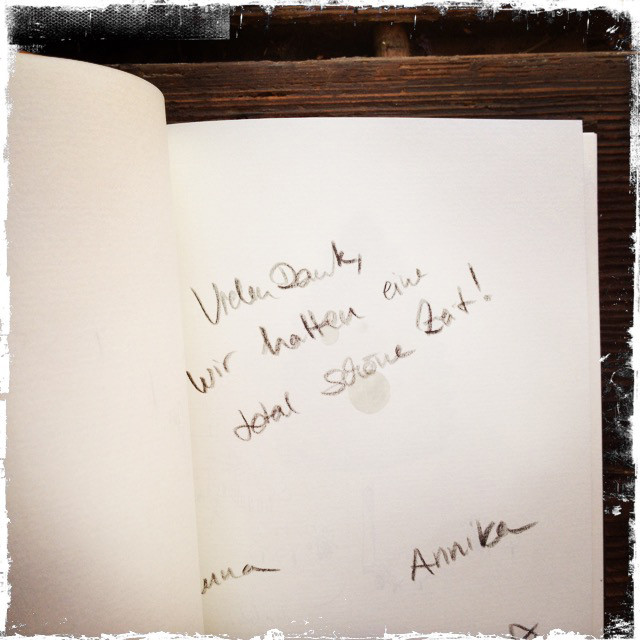 Vielen Dank,
wir hatten eine
total schöne Zeit!
Annika